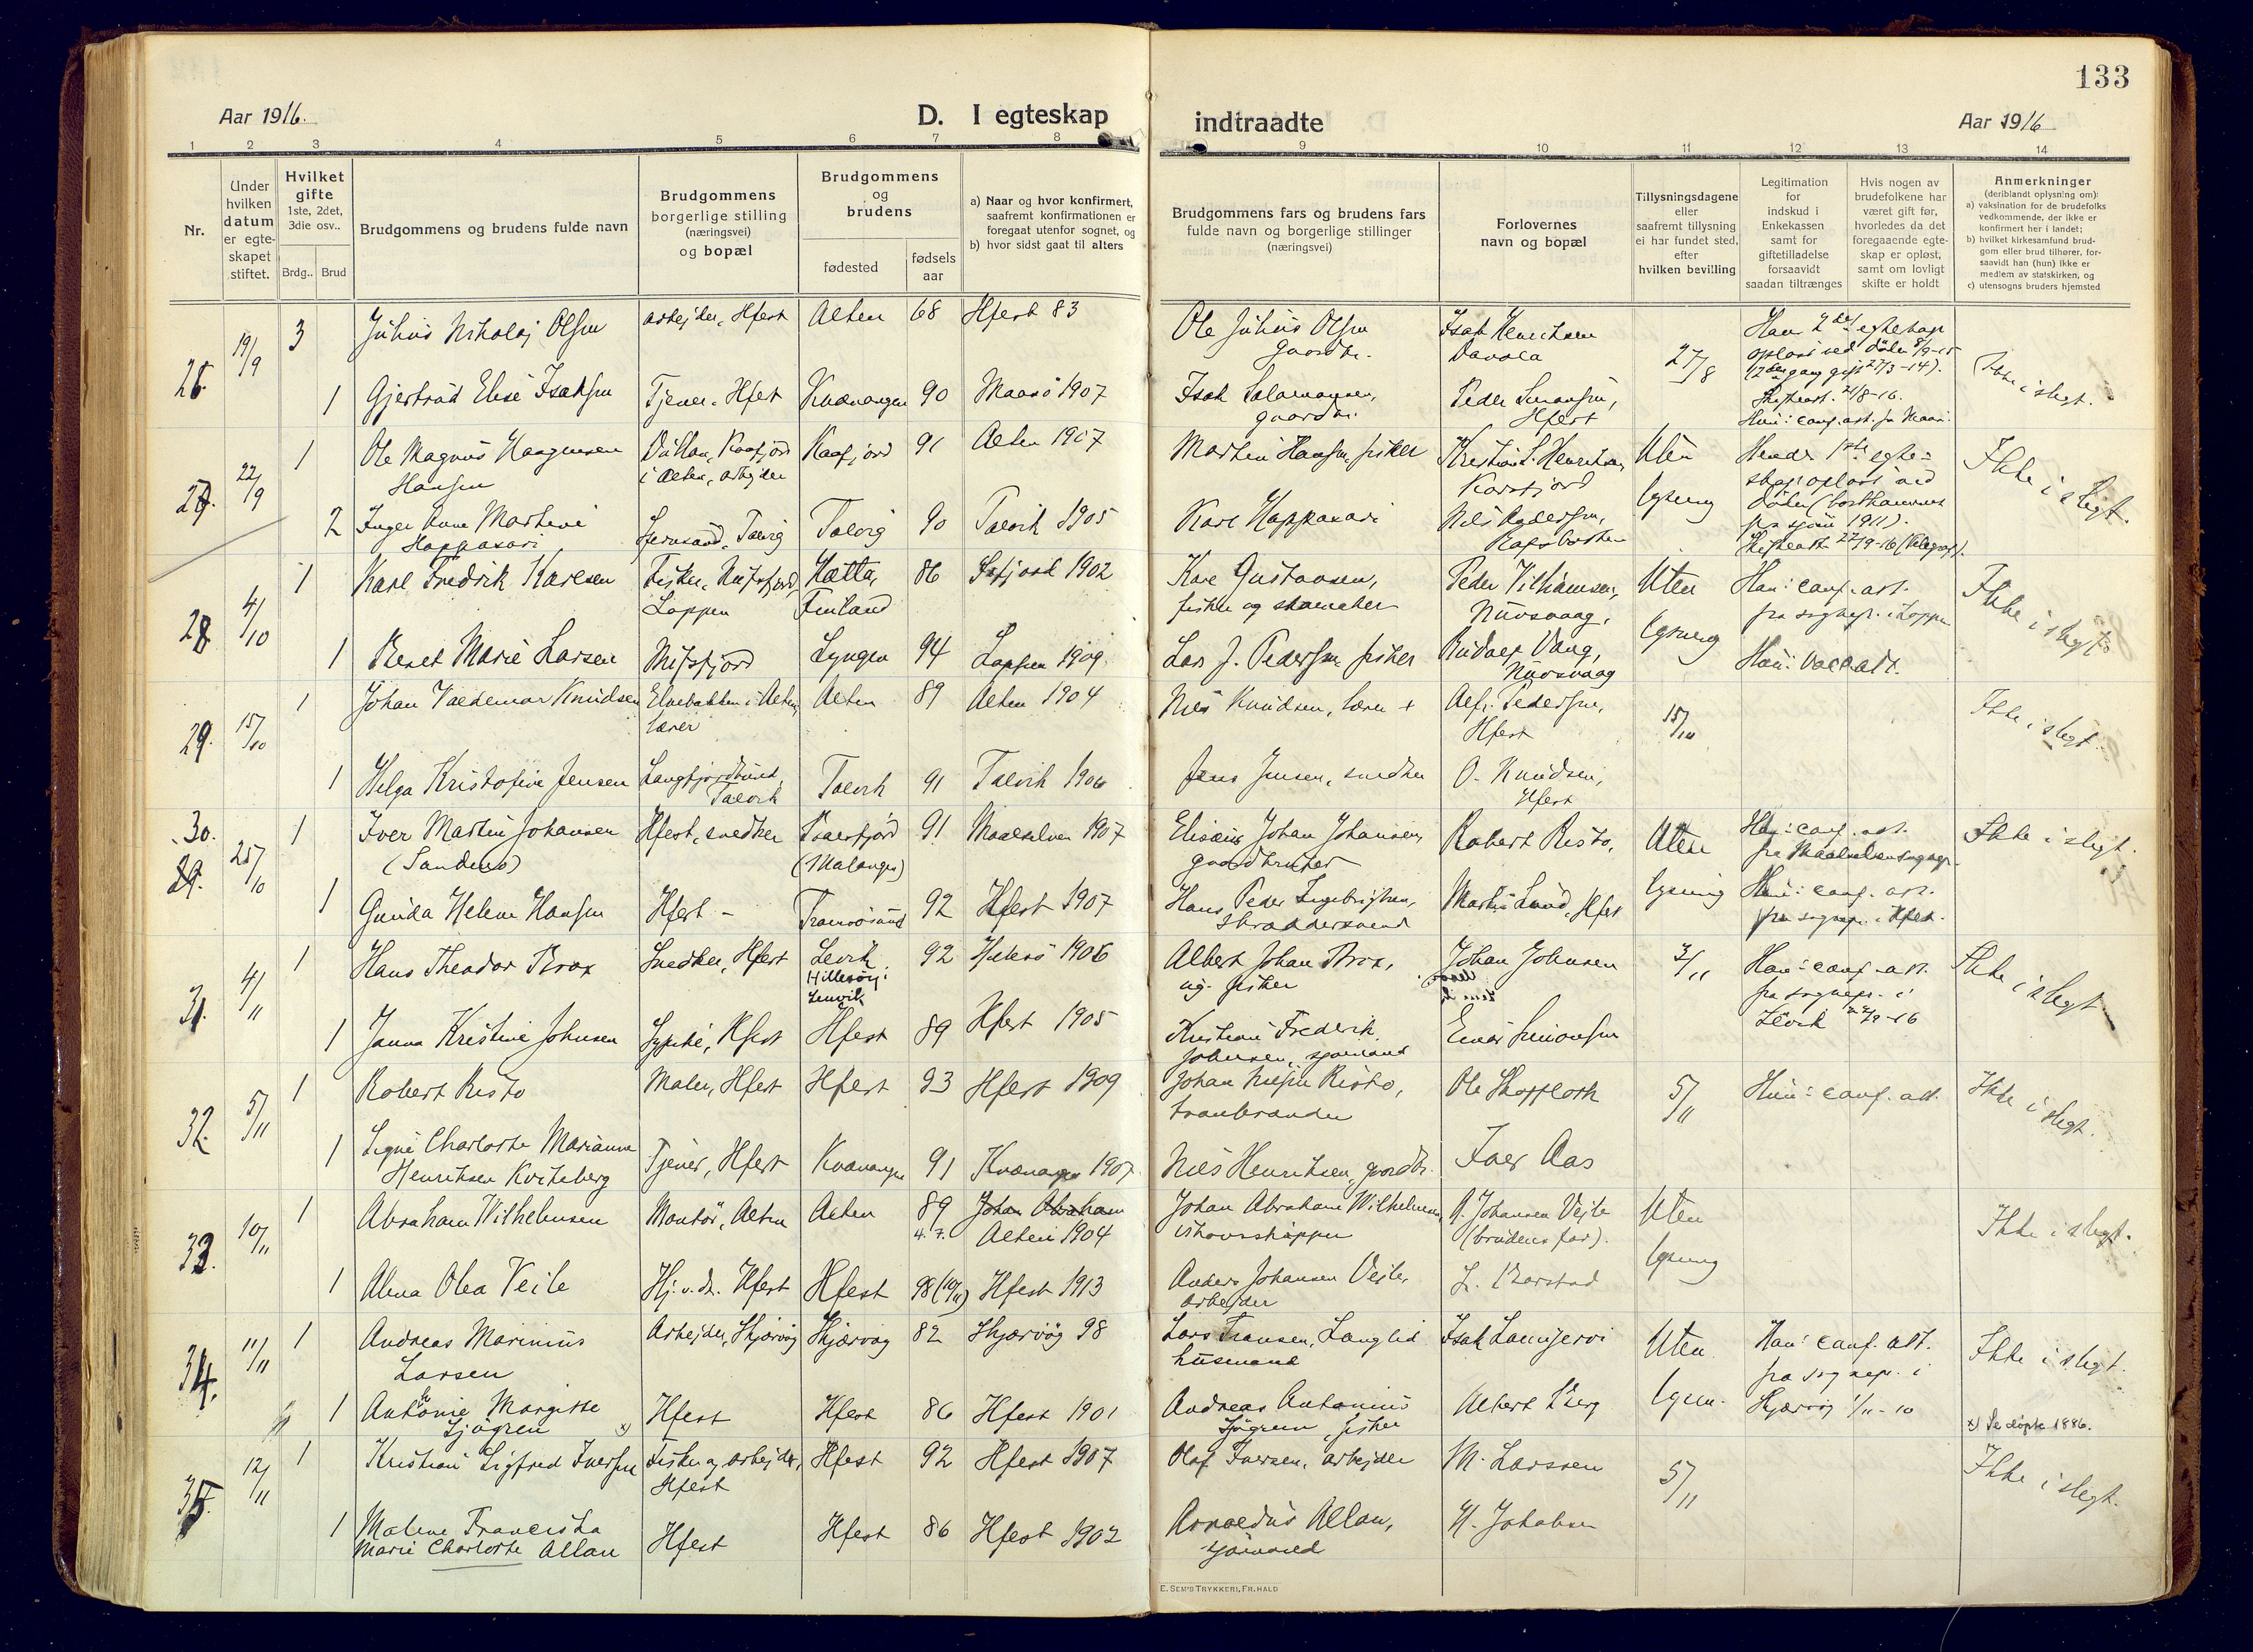 133
Aar 1916.
D. I egteskap
indtraadte
Aar 1916
1 2 3 4 5 6 7 8
9 10 11 12 13 14
Nr.
Under hvilken datum er egteskapet stiftet.
Hvilket gifte
1ste, 2det, 3die osv..
Brdg.. Brud
Brudgommens og brudens fulde navn
Brudgommens borgerlige stilling (næringsvei) og bopæl
Brudgommens og brudens
fødested
fødsels aar
a) Naar og hvor konfirmert, saafremt konfirmationen er foregaat utenfor sognet, og
b) hvor sidst gaat til alters
Brudgommens fars og brudens fars fulde navn og borgerlige stillinger (næringsvei)
Forlovernes navn og bopæl
Tillysningsdagene eller saafremt tillysning ei har fundet sted, efter hvilken bevilling
Legitimation for indskud i Enkekassen samt for giftetilladelse forsaavidt saadan tiltrænges
Hvis nogen av brudefolkene har været gift før, hvorledes da det foregaaende egteskap er opløst, samt om lovligt skifte er holdt
Anmerkninger
(deriblandt oplysning om):
a) vaksination for de brudefolks vedkommende, der ikke er konfirmert her i landet;
b) hvilket kirkesamfund brudgom eller brud tilhører, forsaavidt han (hun) ikke er medlem av statskirken, og
c) utensogns bruders hjemsted
26. 19/9 3 Julius Nikolaj Olsen arbejder, Hfest Alten 68 Hfest 83
Ole Julius Olsen gaardbr. Isak Henriksen 27/8 Han 2det egteskap opløst ved døden 8/9-15 (2den gang gift 27/3-14). Ikke i slegt.
1 Gjertrud Elise Isaksen Tjener, Hfest Kvænangen 90 Maasø 1907
Isak Salamonsen, gaardbr. Peder Simonsen, Hfest
27. 22/9 1 Ole Magnus Haagensen Hansen Kaafjord i Alten, arbejder Kaafjord 91 Alten 1907
Martin Hansen, fisker Kristian S. Henriksen, Korsfjord Uten lysning Hendes 1ste egteskap opløst ved døden (bortkommet paa sjøen 1911). Ikke i slegt.
2 Inger Anne Martine Happasari Talvig Talvig 90 Talvik 1905
Karl Happasari Nils Andersen,
28. 4/10 1 Karl Fredrik Karlsen Fisker, Nufsfjord, Loppen Hætta, Finland 86 1902
Karl Gustavsen, fisker og skomaker Peder Vilhelmsen, Nuvsvaag, Uten lysning Han: conf. att. fra sognepr. i Loppen Ikke i slegt
1 Beret Marie Larsen Nufsfjord Lyngen 94 Loppen 1909
Lars J. Pedersen fisker Rudolf Vang, Nuvsvaag Hun: vacc att.
29. 15/10 1 Johan Valdemar Knudsen Elvebakken i Alten, lærer Alten 89 Alten 1904
Nils Knudsen, lærer + Alfr. Pedersen, Hfest 15/10 Ikke i slegt.
1 Helga Kristofine Jensen Langfjordbund, Talvik Talvik 91 Talvik 1906
Jens Jensen, snedker O. Knudsen, Hfest
30. 25/10 1 Iver Martin Johansen (Sandens) Hfest, snedker (Malangen) 91 Maalselven 1907
Elisæus Johan Johansen, gaardbruker Robert Risto, Uten lysning Han: conf. att. fra Maalselven sognepr. Ikke i slegt.
1 Gunda Helene Hansen Hfest - Tromsøsund 92 Hfest 1907
Hans Peder Ingebrigtsen, skræddersvend Martin Lund, Hfest Hun: conf. att. fra sognepr. i Hfest.
31. 4/11 1 Hans Theodor Brox Snedker, Hfest Lenvik Hillesøy i Lenvik 92 Hillesø 1906
Albert Johan Brox, og fisker Johan Johnsen 3/11 Han: conf. att. fra sognepr. i Ikke i slegt
1 Janna Kristine Johnsen Sypike, Hfest Hfest 89 Hfest 1905
Kristian Frederik Johnsen, sjømand Einar Simonsen
32. 5/11 1 Robert Risto Maler, Hfest Hfest 93 Hfest 1909
Johan Nilsen Risto, tranbrænder 5/11 Hun: conf. att. Ikke i slegt.
1 Signe Charlotte Marianne Henriksen Kviteberg Tjener, Hfest Kvænangen 91 Kvænangen 1907.
Nils Henriksen, gaardbr. Iver Aas
33. 10/11 1 Abraham Wilhelmsen Montør, Alten Alten 89 4.7. Johan Abraham Alten 1904
Johan Abraham Wilhelmsen, ishavsskipper A. Johansen Vejle (brudens far). Uten lysning Ikke i slegt.
1 Alma Olea Veile Hj. v. dr. Hfest Hfest 98 (10/11) Hfest 1913
Anders Johansen Vejle, arbejder L. Barstad
34. 11/11 1 Andreas Marinius Larsen Arbejder, Skjærvøy Skjærvøy 82 Skjærvøy 98
Lars Fransen, Langlid husmand Uten lysn. Han: conf. att. fra sognepr. i Skjærvøy 1/11-10 Ikke i slegt.
1 Anthonie Margitte Sjøgren x) Hfest Hfest 86 Hfest 1901
Andreas Antonius Sjøgren, fisker Albert Berg x) Se døpte 1886.
35. 12/11 1 Kristian Sigfred Iversen Fisker og arbejder, Hfest Hfest 92 Hfest 1907
Olaf Iversen, arbejder M. Larssen 5/11 Ikke i slegt.
1 Malene Franciska Marie Charlotte Allan Hfest Hfest 86 Hfest 1902
Arnoldus Allan, sjømand H. Jakobsen
E. SEM'S TRYKKERI, FR.HALD